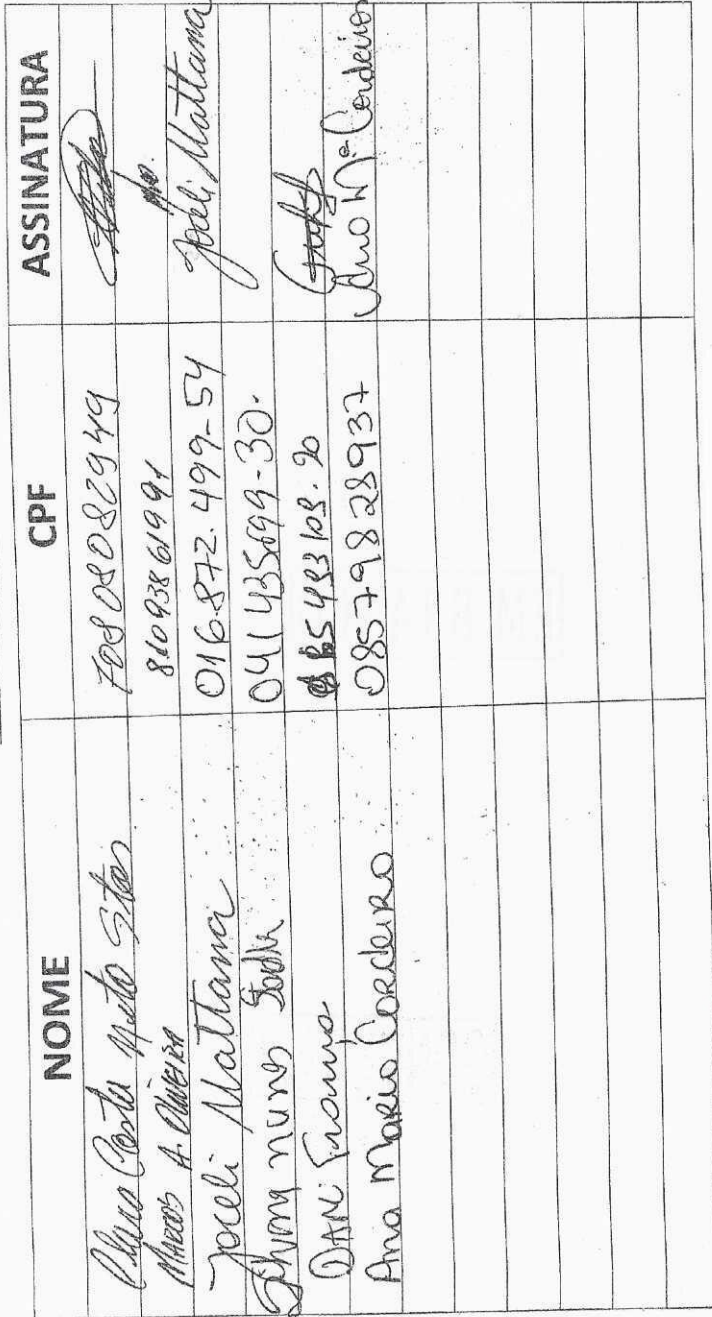 NOME CPF ASSINATURA
Costa Neto 70808082949
MARCOS A. OLIVEIRA 81093861991
Joceli Mattana 016.872.499-54 Joceli Mattana
Nunes 041435699-30.
DANI França 483108.20
Ana Maria Cordeiro 08579828937 Ana Mª Cordeiro